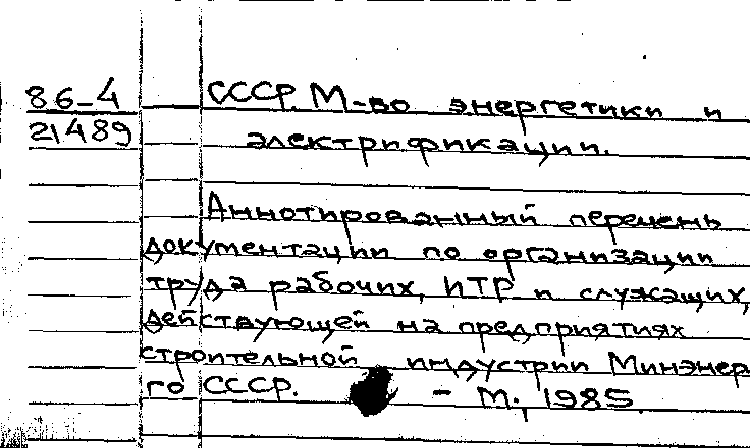 86-4 СССР. М-во энергетики и
21489 электрификации.
Аннотированный перечень
документации по организации
труда рабочих, ИТР и служащих,
действующей на предприятиях
строительной индустрии Минэнер
го СССР. - М., 1985